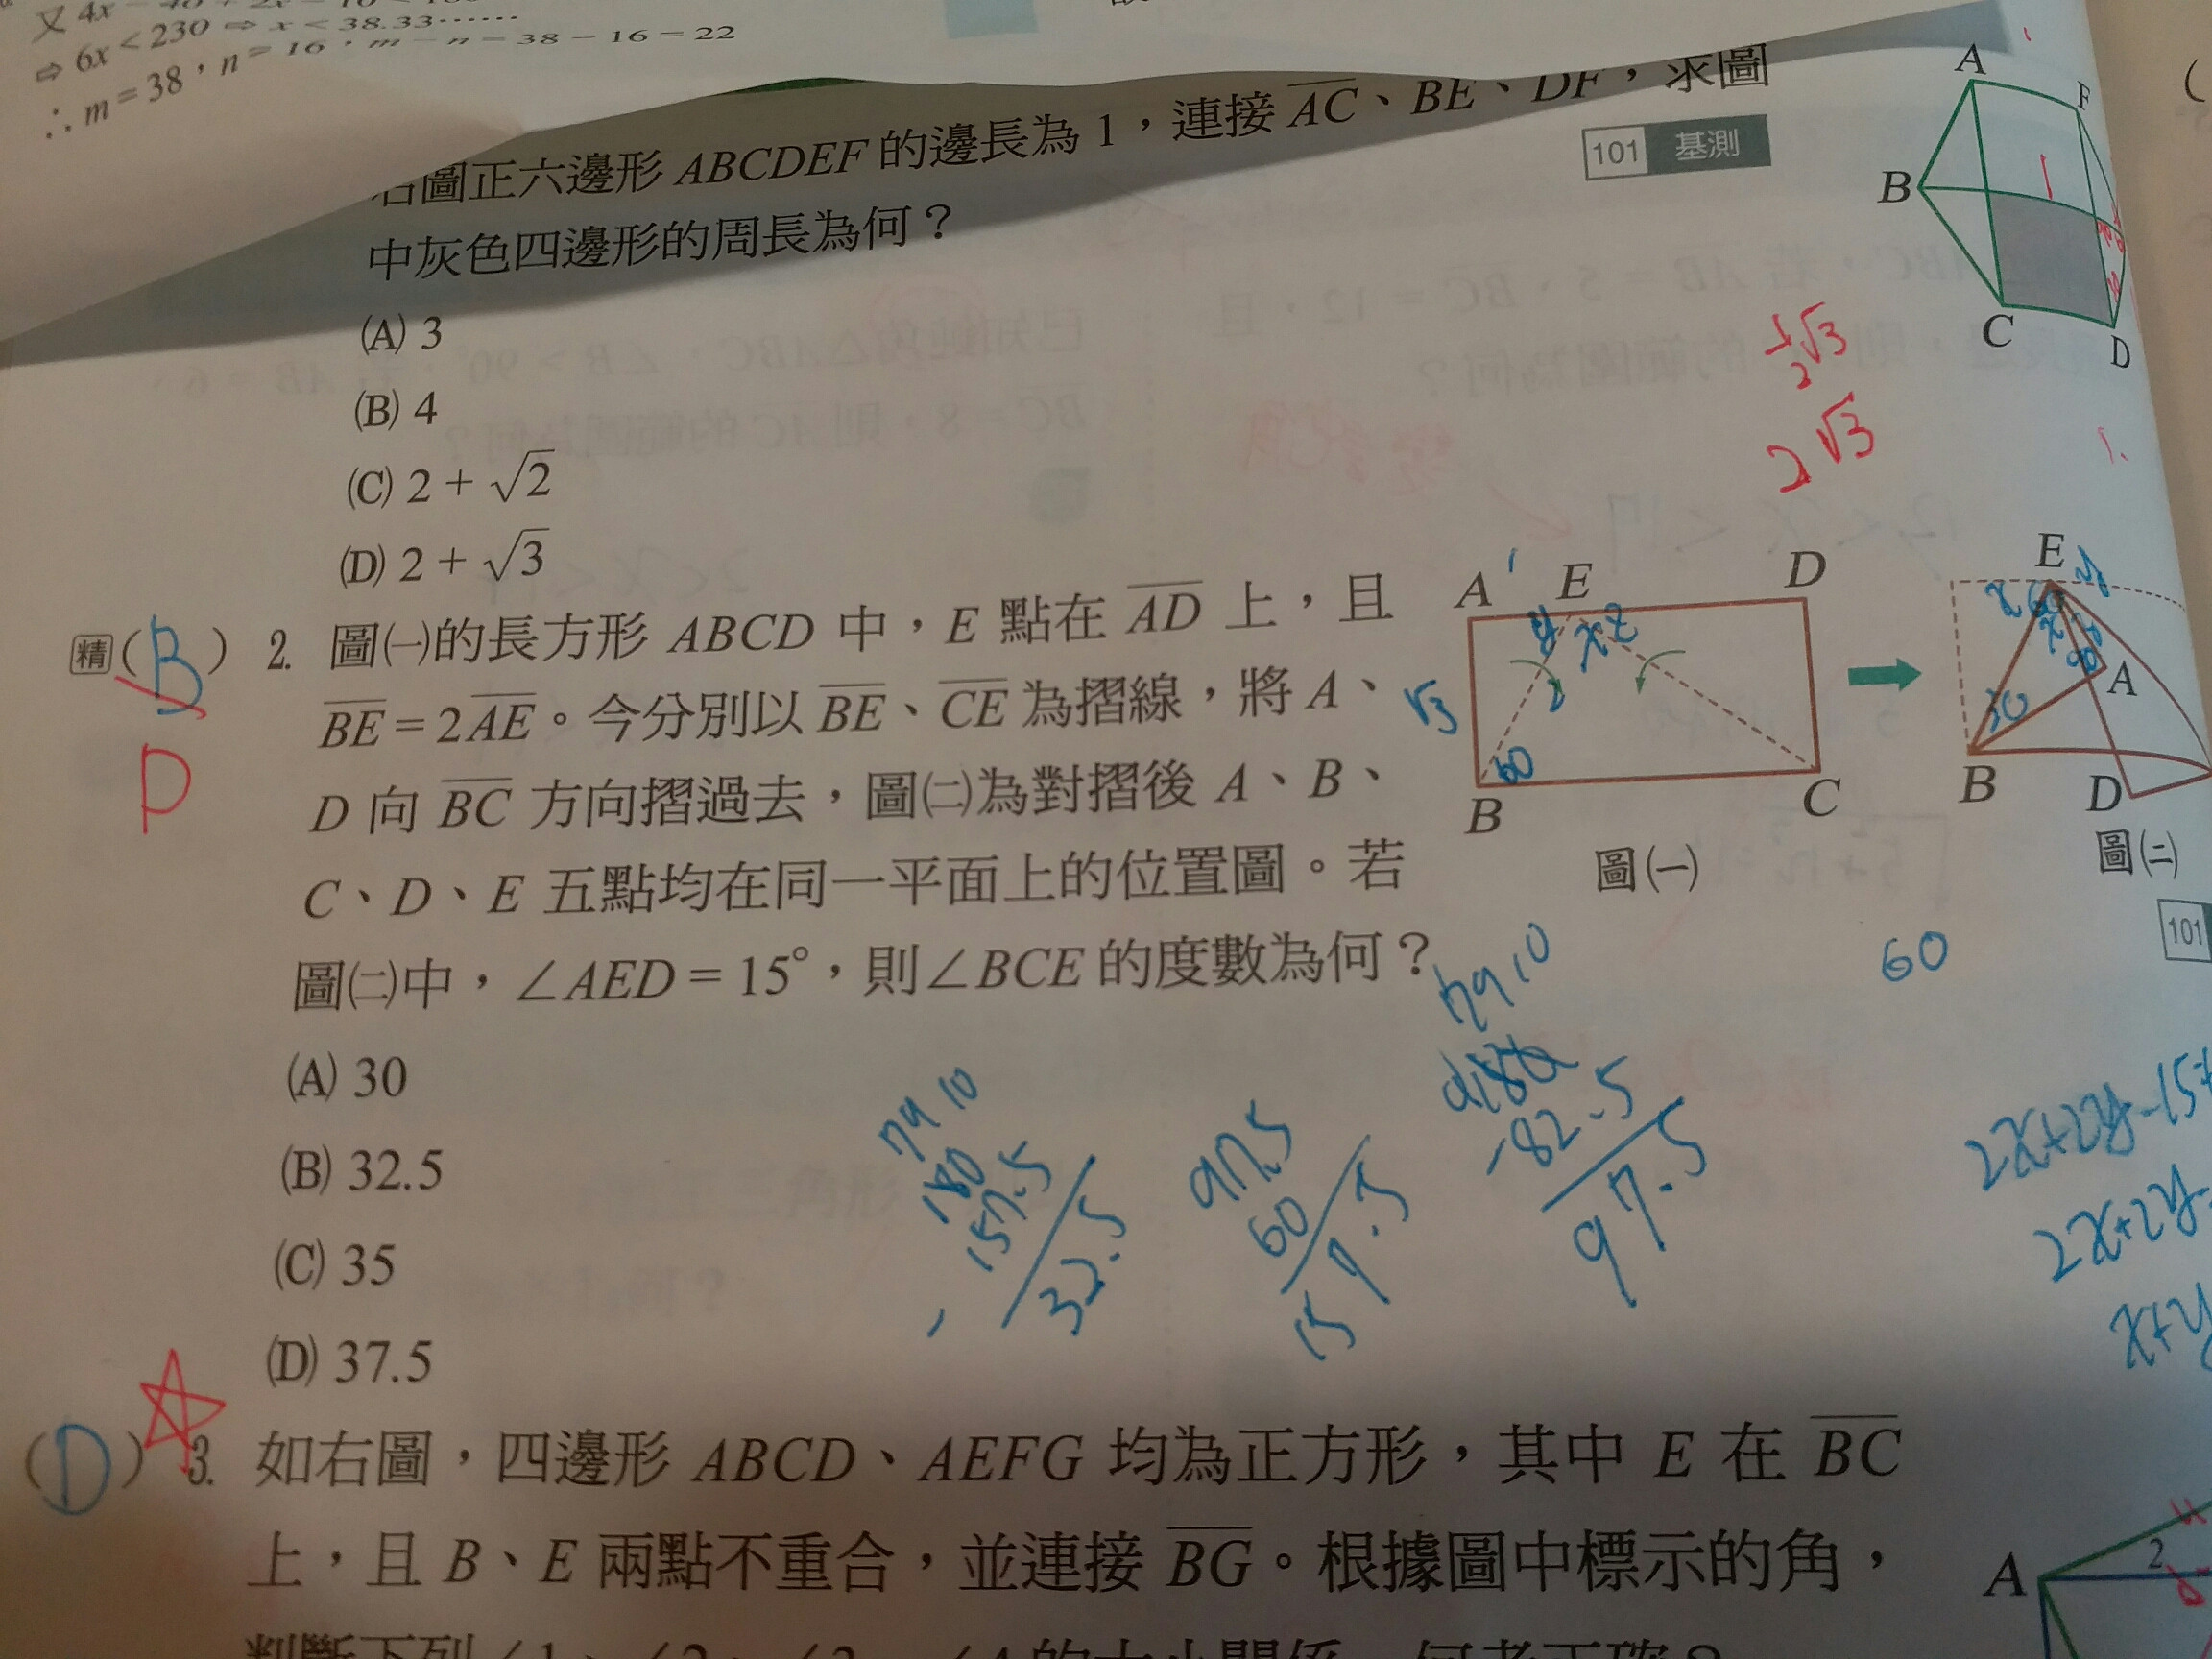 又 4x - 40 + 2x - 10 < 180
⇨ 6x < 230 ⇨ x < 38.33⋯⋯
∴ m = 38，n = 16，m - n = 38 - 16 = 22
右圖正六邊形 ABCDEF 的邊長為 1，連接 AC、BE、DF，求圖
中灰色四邊形的周長為何？
101 基測
(A) 3
(B) 4
(C) 2 + √2
(D) 2 + √3
A
F
B
1
C
D
1/2 √3
2√3
精 (B) 2. 圖㈠的長方形 ABCD 中，E 點在 AD 上，且
D
BE = 2AE。今分別以 BE、CE 為摺線，將 A、
D 向 BC 方向摺過去，圖㈡為對摺後 A、B、
C、D、E 五點均在同一平面上的位置圖。若
圖㈡中，∠AED = 15°，則∠BCE 的度數為何？
(A) 30
(B) 32.5
(C) 35
(D) 37.5
A 1 E D
y x z
√3 2
60
B C
圖㈠
E
A
30
B D
圖㈡
101
60
180
157.5
32.5
97.5
60
157.5
-82.5
97.5
2x+2y-15
2x+2y
x+y
(D) 3. 如右圖，四邊形 ABCD、AEFG 均為正方形，其中 E 在 BC
上，且 B、E 兩點不重合，並連接 BG。根據圖中標示的角，
判斷下列∠1、∠2、∠3、∠4 的大小關係，何者正確？
A
2